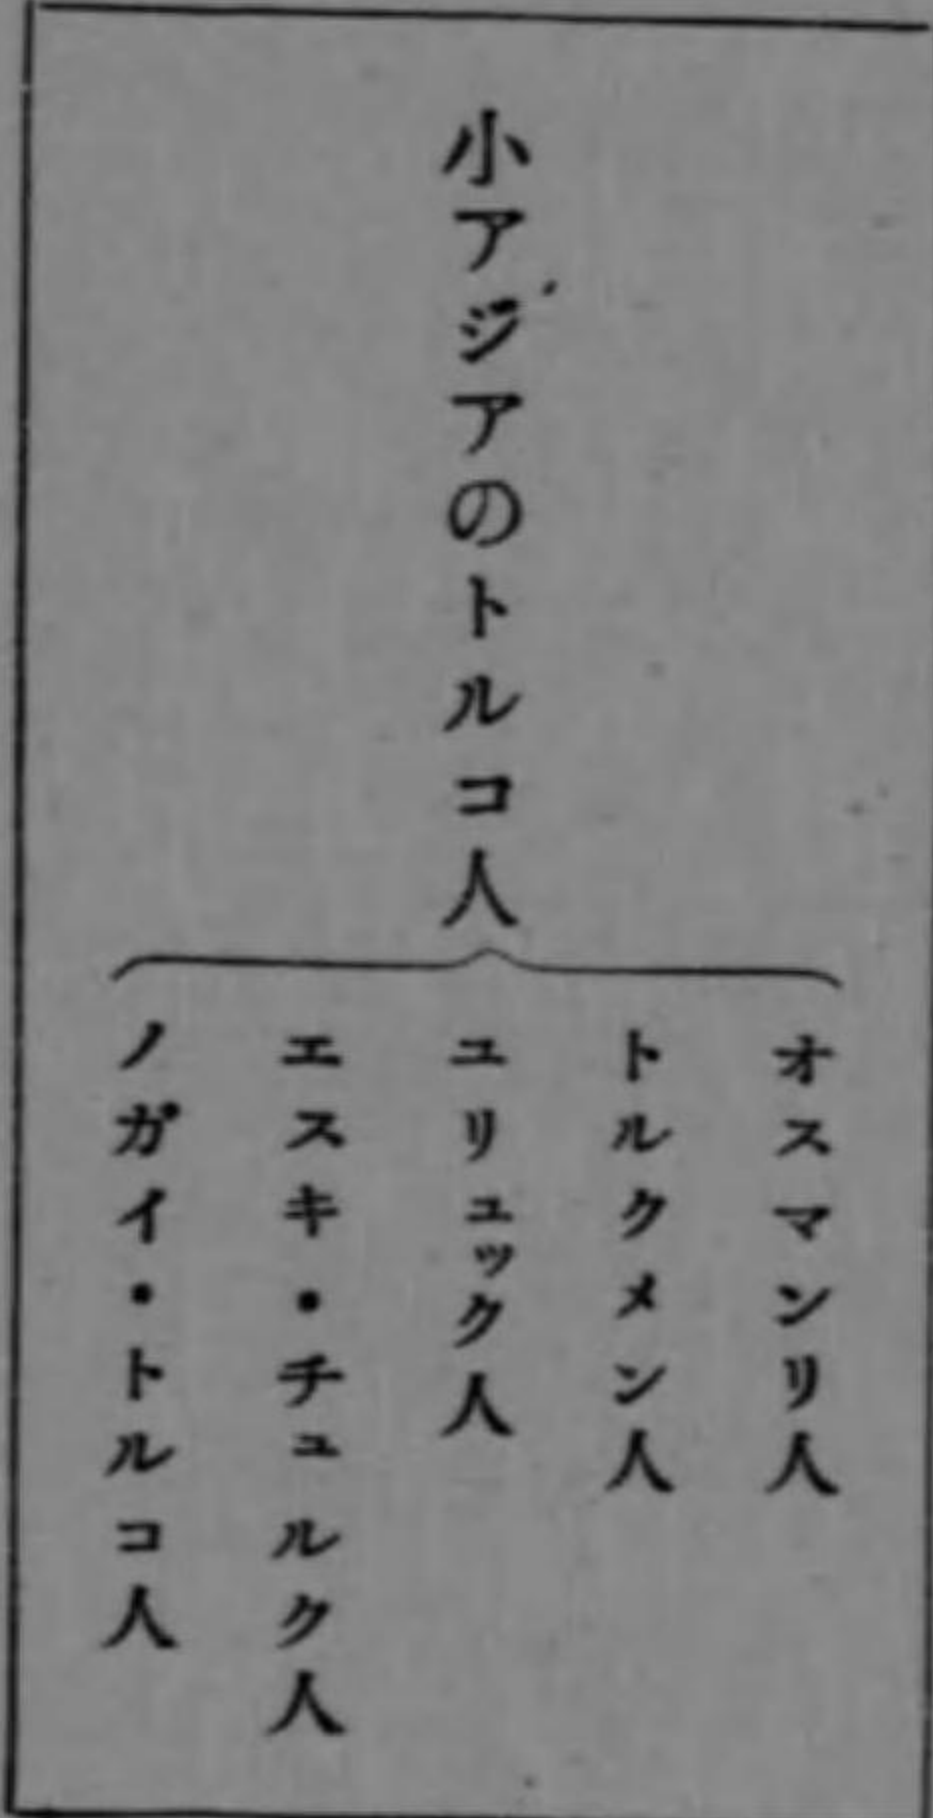 小アジアのトルコ人
オスマンリ人
トルクメン人
ユリュック人
エスキ・チュルク人
ノガイ・トルコ人